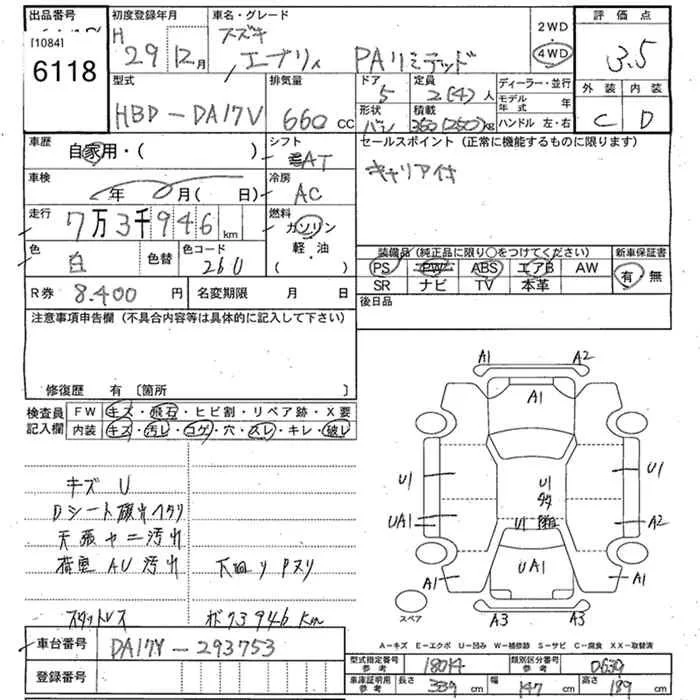 出品番号
[1084]
6118
初度登録年月
H 29年 12月
車名・グレード
スズキ
エブリィ PAリミテッド
2WD
・
4WD
評価点
3.5
外装 内装
C D
型式
HBD-DA17V
排気量
660 CC
ドア
5
定員
2(4)人
形状
バン
積載
350(250)kg
ディーラー・並行
モデル年式 年
ハンドル 左・右
車歴
自家用・( )
シフト
AT
セールスポイント (正常に機能するものに限ります)
キャリア付
車検
年 月( 日)
冷房
AC
走行
7万3千946 km
燃料
ガソリン
軽・油
( )
色
白
色替
色コード
26U
装備品(純正品に限り○をつけてください)
新車保証書
PS PW ABS エアB AW
有・無
SR ナビ TV 本革
後日品
R券 8.400円
名変期限 月 日
注意事項申告欄 (不具合内容等は具体的に記入して下さい)
修復歴 有 〔箇所 〕
検査員
記入欄
FW キズ・飛石・ヒビ割・リペア跡・X要
内装 キズ・汚レ・コゲ・穴・スレ・キレ・破レ
キズ U
Dシート
天張ヤニ汚れ
荷室 AU 汚れ
下回り Pヌリ
スタットレス
73946 km
A1 A2
A1
U1 U1 U1
UA1 U1 A2
UA1
A1 A1
A3 A3
スペア
A-キズ E-エクボ U-凹み W-補修跡 S-サビ C-腐食 XX-取替済
車台番号
DA17V-293753
登録番号
型式指定番号
参考
18014
類別区分番号
参考
0639
車庫証明用
参考
長さ 339 cm
幅 147 cm
高さ 189 cm